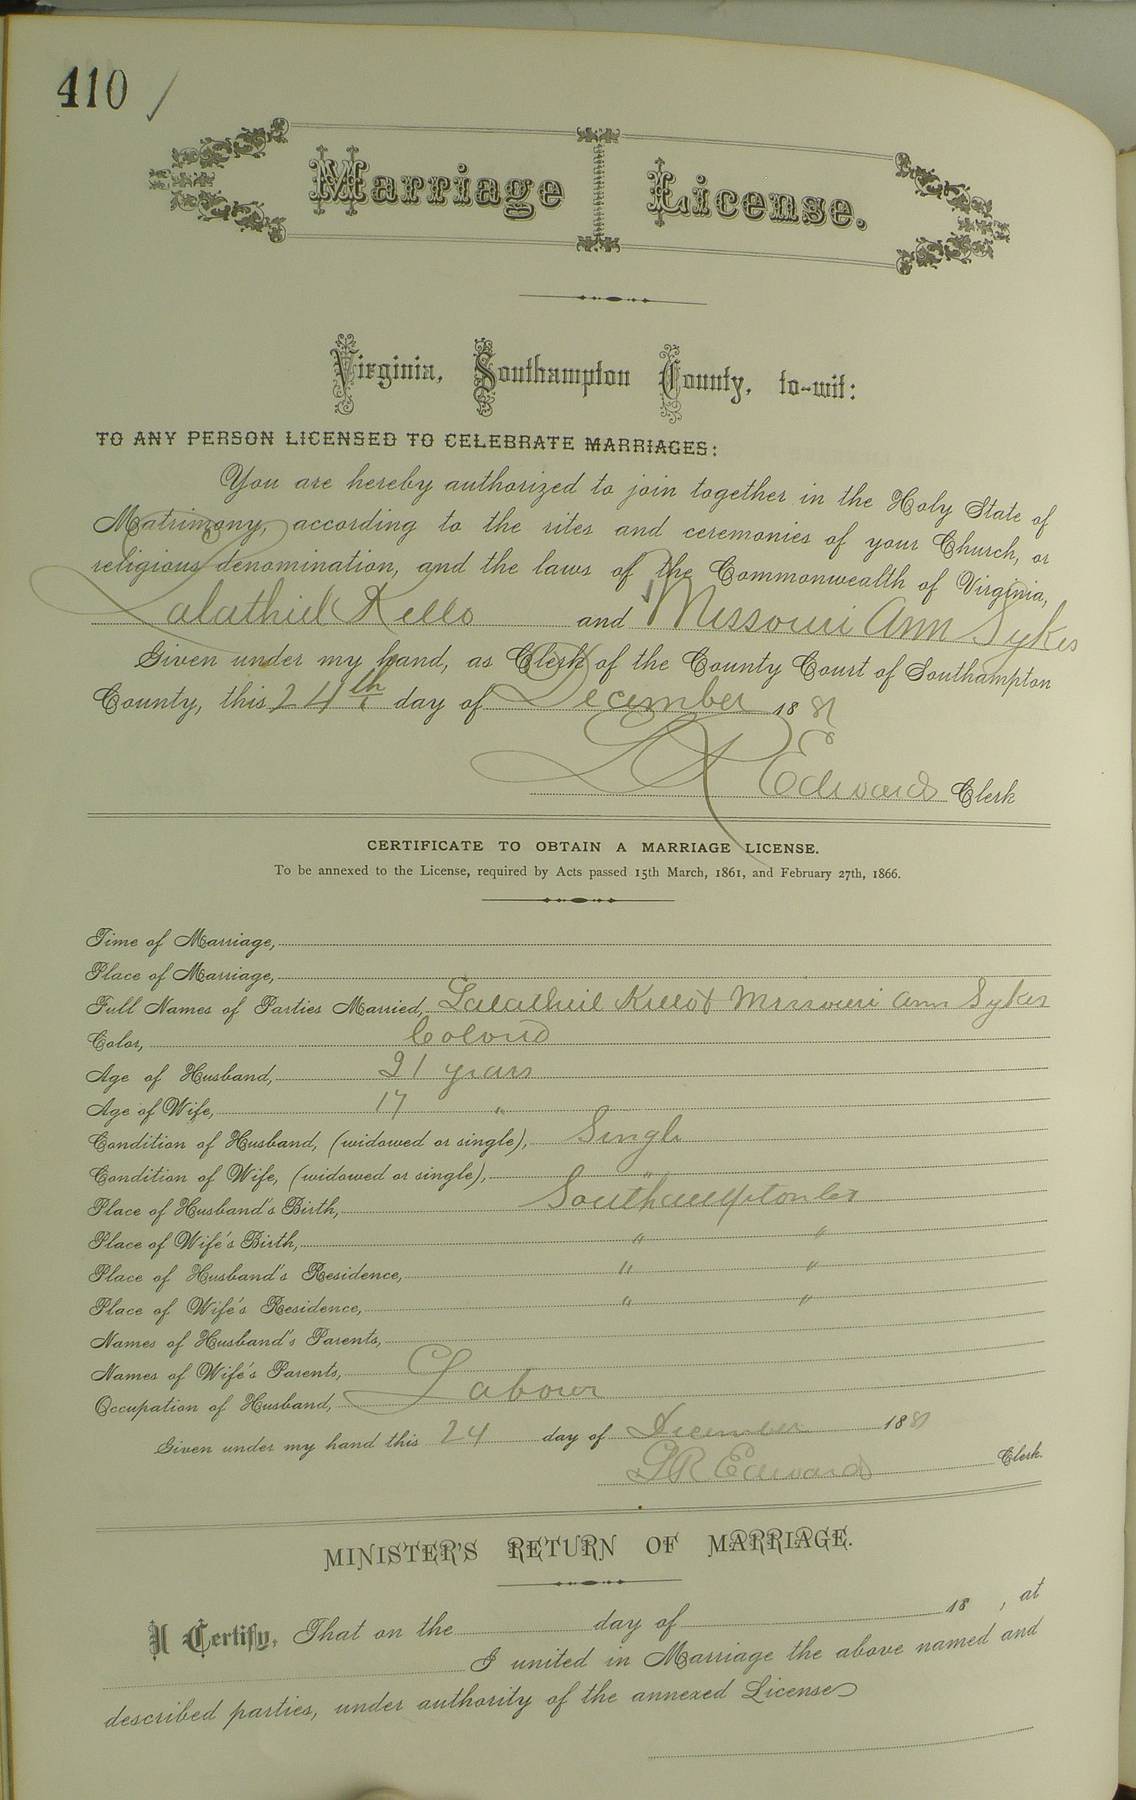 410 /
Marriage License.
Virginia, Southampton County, to-wit:
TO ANY PERSON LICENSED TO CELEBRATE MARRIAGES:
You are hereby authorized to join together in the Holy State of
Matrimony, according to the rites and ceremonies of your Church, or
religious denomination, and the laws of the Commonwealth of Virginia,
Salathiel Kello and Missouri Ann Sykes
Given under my hand, as Clerk of the County Court of Southampton
County, this 24th day of December 1881
L R Edwards Clerk
CERTIFICATE TO OBTAIN A MARRIAGE LICENSE.
To be annexed to the License, required by Acts passed 15th March, 1861, and February 27th, 1866.
Time of Marriage,
Place of Marriage,
Full Names of Parties Married, Salathiel Kello & Missouri Ann Sykes
Color, Colored
Age of Husband, 21 years
Age of Wife, 17 "
Condition of Husband, (widowed or single), Single
Condition of Wife, (widowed or single), "
Place of Husband's Birth, Southampton Co
Place of Wife's Birth, " "
Place of Husband's Residence, " "
Place of Wife's Residence, " "
Names of Husband's Parents,
Names of Wife's Parents,
Occupation of Husband, Labourer
Given under my hand this 24 day of December 1881
L R Edwards Clerk.
MINISTER'S RETURN OF MARRIAGE.
I Certify, That on the day of 18 , at
I united in Marriage the above named and
described parties, under authority of the annexed License